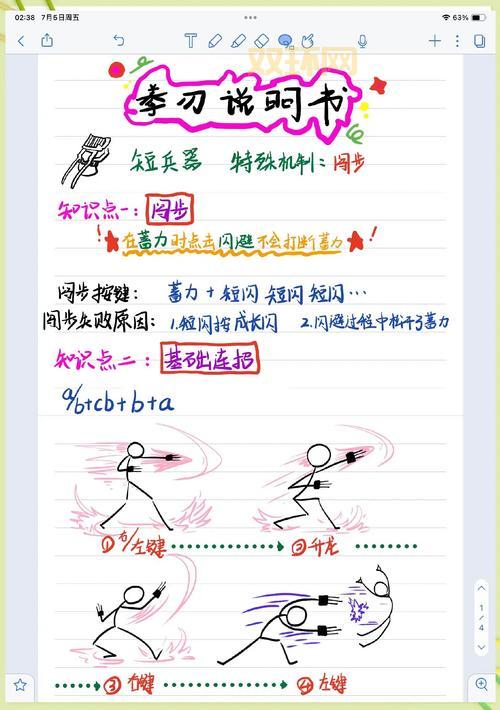 02:38 7月5日周五
63%
双环网
拳刃说明书
短兵器 特殊机制：闪步
知识点一：闪步
！在蓄力时点击闪避不会打断蓄力！
闪步按键： 蓄力 + 短闪 短闪 短闪…
闪步失败原因： 1.短闪按成长闪 2.闪避过程中松开了蓄力
知识点二：基础连招
a/b+cb+b+a
①右/左键
②升龙
③右键
④左键
1/4